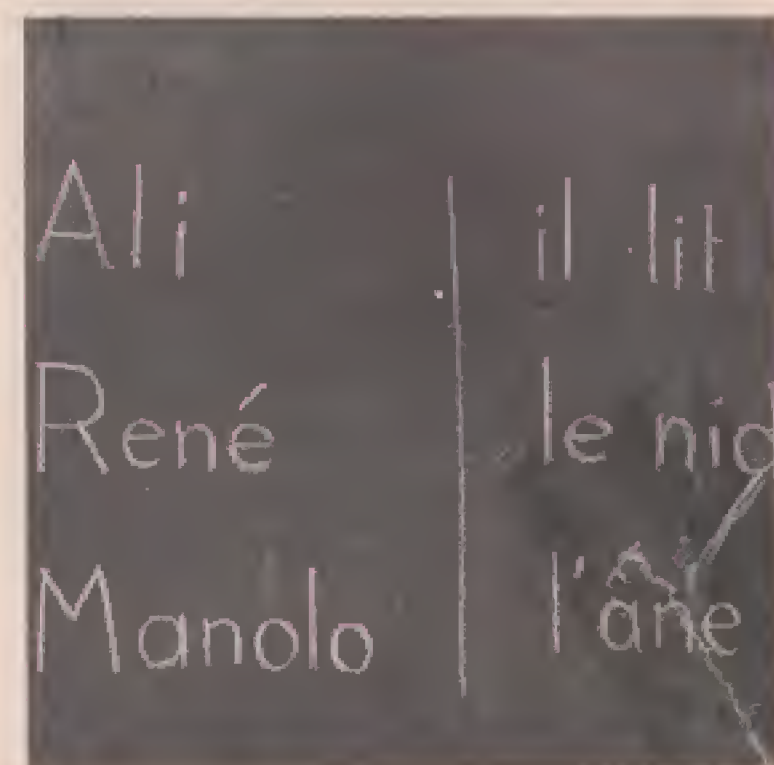 Ali
René
Manolo
il lit
le nid
l'âne